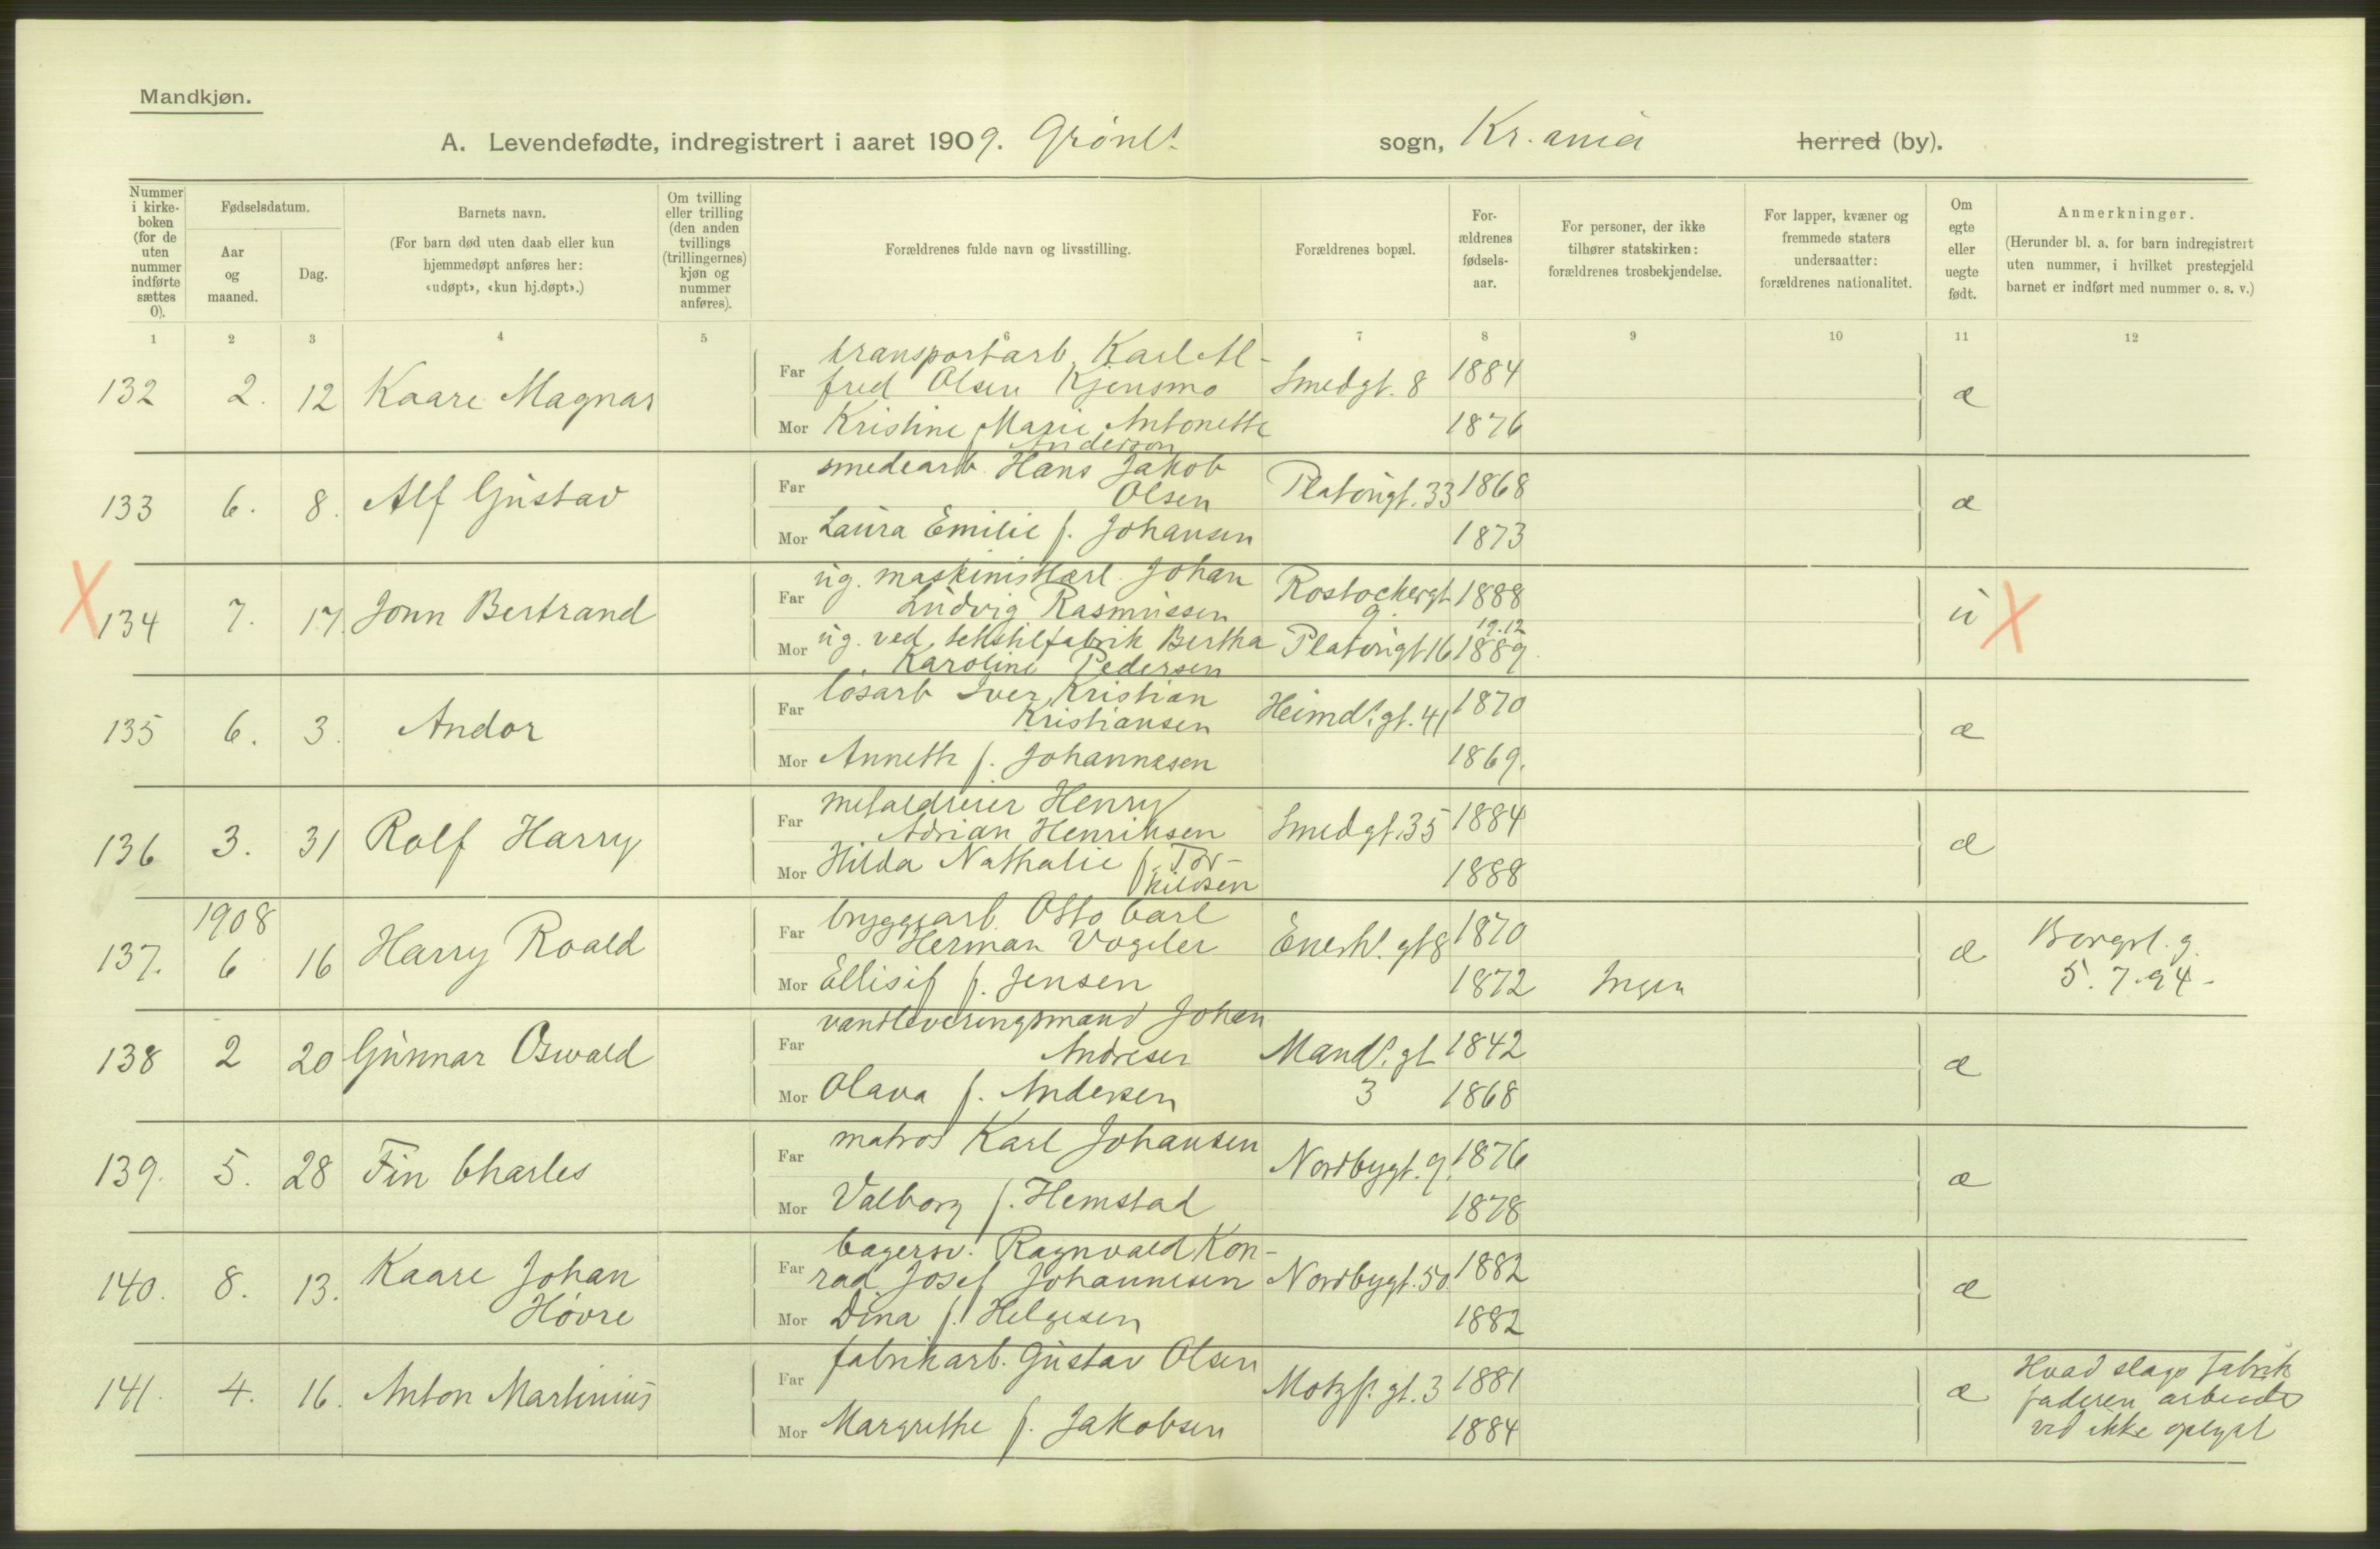 Mandkjøn.
A. Levendefødte, indregistrert i aaret 1909. Grønl. sogn, Kr.ania herred (by).
Nummer i kirke-boken (for de uten nummer indførte sættes 0).
Fødselsdatum.
Aar og maaned.
Dag.
Barnets navn.
(For barn død uten daab eller kun hjemmedøpt anføres her: «udøpt», «kun hj.døpt».)
Om tvilling eller trilling (den anden tvillings (trillingernes) kjøn og nummer anføres).
Forældrenes fulde navn og livsstilling.
Forældrenes bopæl.
For-ældrenes fødsels-aar.
For personer, der ikke tilhører statskirken: forældrenes trosbekjendelse.
For lapper, kvæner og fremmede staters undersaatter: forældrenes nationalitet.
Om egte eller uegte født.
Anmerkninger.
(Herunder bl. a. for barn indregistrert uten nummer, i hvilket prestegjeld barnet er indført med nummer o. s. v.)
1 2 3 4 5 6 7 8 9 10 11 12
132 2. 12 Kaare Magnar
Far transportarb. Karl Al-
fred Olsen Kjensmo Smedgt. 8 1884 æ
Mor Kristine Marie Antonette 1876
Anderson
133 6. 8. Alf Gustav
Far smedearb. Hans Jakob
Olsen Platougt. 33 1868 æ
Mor Laura Emilie f. Johansen 1873
X 134 7. 17. Jonn Bertrand
Far ug. maskinistlærl. Johan
Ludvig Rasmussen Rostockergt 9. 1888 u X
Mor ug. ved tekstilfabrik Bertha Platougt 16 19.12 1889.
Karoline Pedersen
135 6. 3. Andor
Far løsarb Iver Kristian
Kristiansen Heimd. gt. 41 1870 æ
Mor Anneth f. Johannesen 1869.
136 3. 31 Rolf Harry
Far metaldreier Henry
Adrian Henriksen Smedgt. 35 1884 æ
Mor Hilda Nathalie f. Tor-
kildsen 1888
137. 1908 6 16 Harry Roald
Far bryggearb. Otto Carl
Herman Vogeler Enerh. gt 8 1870 æ Borgerl. g.
Mor Ellisif f. Jensen 1872 Ingen 5. 7. 94 -
138 2 20 Gunnar Oswald
Far vandleveringsmand Johan
Andresen Mand. gt 3 1842 æ
Mor Olava f. Andersen 1868
139. 5. 28 Fin Charles
Far matros Karl Johansen Nordbygt. 9. 1876 æ
Mor Valborg f. Hemstad 1878
140. 8. 13. Kaare Johan
Høvre
Far bagersv. Ragnvald Kon-
rad Josef Johannesen Nordbygt. 50. 1882 æ
Mor Dina f. Helgesen 1882
141. 4. 16. Anton Martinius
Far fabrikarb. Gustav Olsen Motzf. gt. 3 1881 æ
Mor Margrethe f. Jakobsen 1884
Hvad slags fabrik
faderen arbeider
ved ikke oplyst